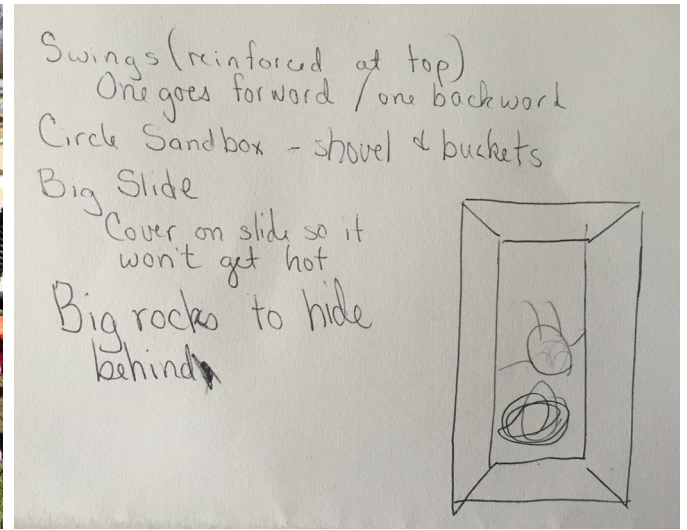 Swings (reinforced at top)
One goes forward / one backward
Circle Sandbox - shovel & buckets
Big Slide
Cover on slide so it
won't get hot
Big rocks to hide
behind